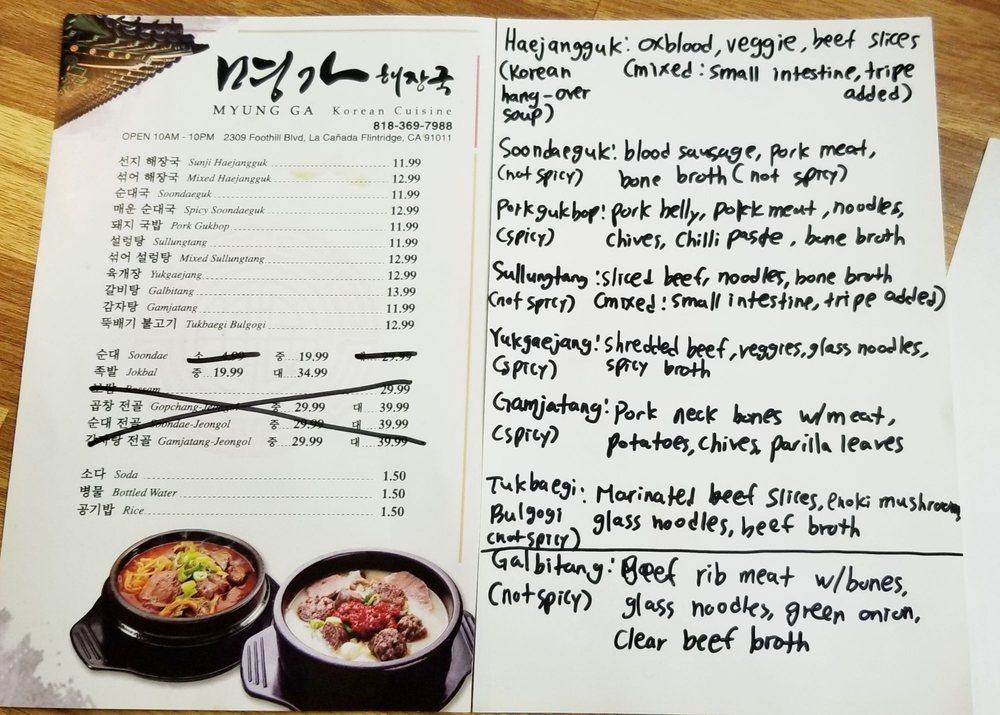 명가 해장국
MYUNG GA Korean Cuisine
818-369-7988
OPEN 10AM - 10PM 2309 Foothill Blvd, La Cañada Flintridge, CA 91011
선지 해장국 Sunji Haejangguk 11.99
섞어 해장국 Mixed Haejangguk 12.99
순대국 Soondaeguk 11.99
매운 순대국 Spicy Soondaeguk 12.99
돼지 국밥 Pork Gukbop 11.99
설렁탕 Sullungtang 11.99
섞어 설렁탕 Mixed Sullungtang 12.99
육개장 Yukgaejang 12.99
갈비탕 Galbitang 13.99
감자탕 Gamjatang 11.99
뚝배기 불고기 Tukbaegi Bulgogi 12.99
순대 Soondae 소 4.99 중 19.99 대 29.99
족발 Jokbal 중 19.99 대 34.99
보쌈 Bossam 29.99
곱창 전골 Gopchang-Jeongol 중 29.99 대 39.99
순대 전골 Soondae-Jeongol 중 29.99 대 39.99
감자탕 전골 Gamjatang-Jeongol 중 29.99 대 39.99
소다 Soda 1.50
병물 Bottled Water 1.50
공기밥 Rice 1.50
Haejangguk: oxblood, veggie, beef slices
(Korean (mixed: small intestine, tripe
hang-over added)
soup)
Soondaeguk: blood sausage, pork meat,
(not spicy) bone broth (not spicy)
Porkgukbop: pork belly, pork meat, noodles,
(spicy) chives, chilli paste, bone broth
Sullungtang: sliced beef, noodles, bone broth
(not spicy) (mixed: small intestine, tripe added)
Yukgaejang: shredded beef, veggies, glass noodles,
(spicy) spicy broth
Gamjatang: pork neck bones w/meat,
(spicy) potatoes, chives, parilla leaves
Tukbaegi: Marinated beef slices, enoki mushrooms
Bulgogi glass noodles, beef broth
(not spicy)
Galbitang: Beef rib meat w/bones,
(not spicy) glass noodles, green onion,
clear beef broth